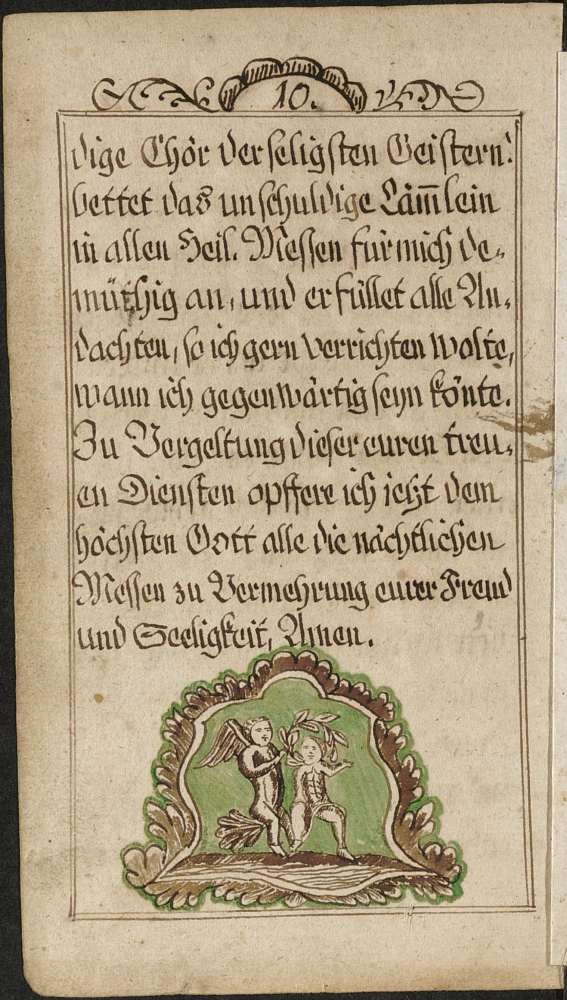 10.
dige Chör der seligsten Geistern!
bettet das unschuldige Läm̄lein
in allen Heil. Messen für mich de=
müthig an, und erfüllet alle An=
dachten, so ich gern verrichten wolte,
wann ich gegenwärtig seyn könte.
Zu Vergeltung dieser euren treu=
en Diensten opffere ich jetzt dem
höchsten Gott alle die nächtlichen
Messen zu Vermehrung eurer Freud
und Seeligkeit, Amen.